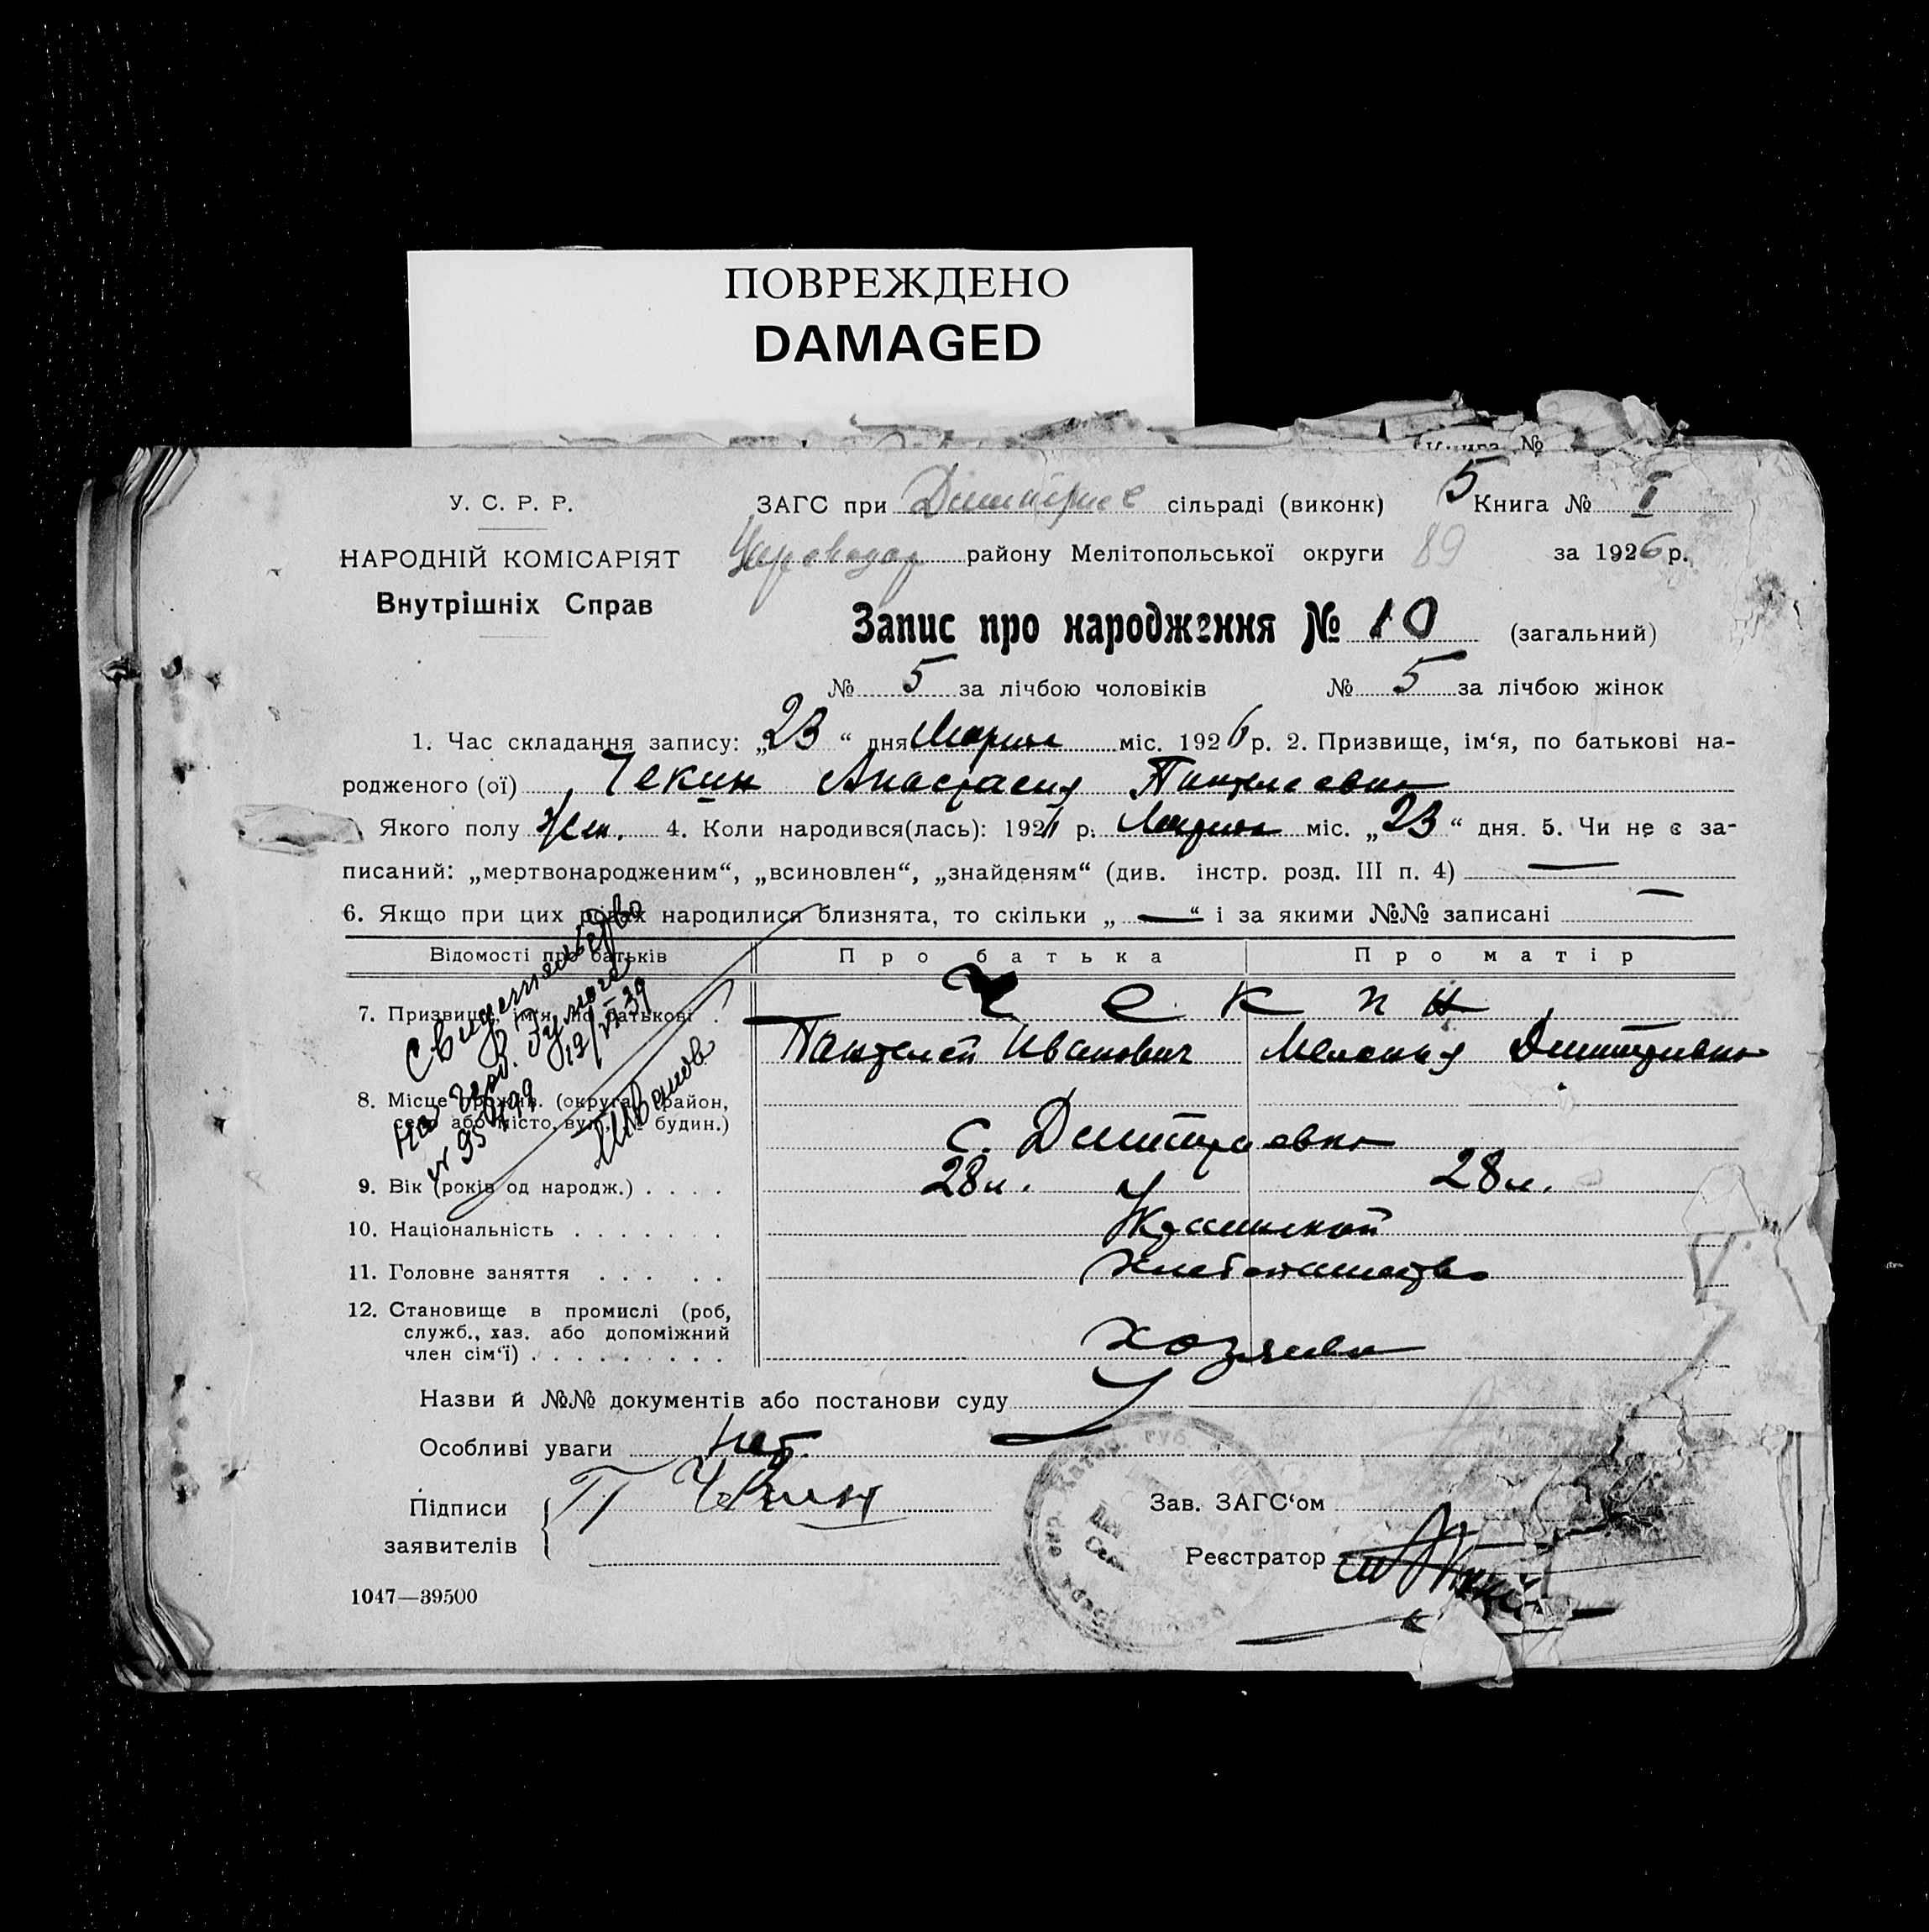 ПОВРЕЖДЕНО
DAMAGED
Книга №
У. С. Р. Р.
НАРОДНІЙ КОМІСАРІЯТ
Внутрішніх Справ
ЗАГС при сільраді (виконк) 5 Книга № I
району Мелітопольської округи 89 за 1926 р.
Запис про народження № 10 (загальний)
№ 5 за лічбою чоловіків № 5 за лічбою жінок
1. Час складання запису: „23“ дня Марта міс. 1926 р. 2. Призвище, ім‘я, по батькові на-
родженого (ої) Чекин Анастасия Пантелеевна
Якого полу жен. 4. Коли народився(лась): 1926 р. Марта міс. „23“ дня. 5. Чи не є за-
писаний: „мертвонародженим“, „всиновлен“, „знайденям“ (див. інстр. розд. III п. 4) —
6. Якщо при цих родах народилися близнята, то скільки „—“ і за якими №№ записані —
Відомості про батьків Про батька Про матір
7. Призвище, ім‘я, по батькові . Чекин
Пантелей Иванович Мелания Дмитриевна
8. Місце урожен. (округа, район,
село або місто, вул., № будин.)
с. Дмитриевка
9. Вік (років од народж.) . . . . 28 л. 28 л.
10. Національність . . . . . . . Украинской
11. Головне заняття . . . . . Хлебопашество
12. Становище в промислі (роб,
служб., хаз. або допоміжний
член сім‘ї) . . . . . . . . . Хозяева
Свидетельство
12/VII 39
Иванов
Назви й №№ документів або постанови суду
Особливі уваги нет
Підписи
заявителів
П Чекин
Зав. ЗАГС‘ом
Реєстратор
1047—39500